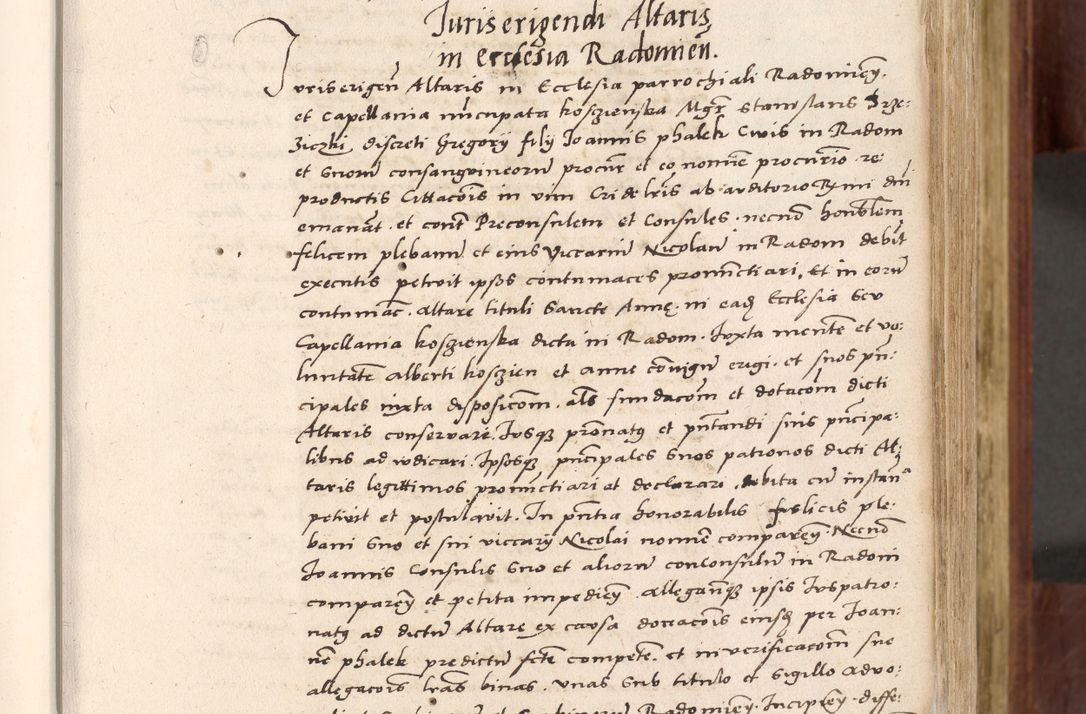 Juris erigendi Altaris
in ecclesia Radomień.
Juris erigeñ Altaris in Ecclesia parrochiali Radomieñ.
et Capellania nūcupata koszienska Mgr̄ Stanislaus Brze:
ziczki discreti Gregorij filij Joannis phalek Civis in Radom
et suorū consanguineorū procur̄ et eo nomīe procur̄io re:
productis Cittacoīs in vim Cridelrīs ab auditorio Rzmi dnī
emanāt. et cont̄ Preconsulem et Consules. necnō honblēm
felicem plebanū et eius Viccariū Nicolaū in Radom debit̄
executis petivit ipsos contumaces pronūctiari, Et in eorū
contumac̄. Altare tituli Sancte Annę. in eadȝ Ecclesia Seu
Capellania koszienska dicta in Radom. Juxta mentē et vo:
luntatē Alberti koszien et Anne cōniugū erigi. et suos pn̄:
cipales iuxta disposicōm. als̄ fundacōm et dotacōm dicti
Altaris conservare. Jusqȝ pr̄onatꝯ et pn̄tandi suis pn̄cipa:
libus adiudicari. Ipsosqȝ pn̄cipales suos patronos dicti Al:
taris legittimos pronūctiari et declarari. debita cū instan̄a
petivit et postulavit. In pn̄tia honorabilis felicis ple:
bani suo et sui viccarij Nicolai nomīe compareñ. Necnō
Joannis Consulis suo et aliorū conconsulū in Radom
compareñ et petita impedieñ. allegan̄qȝ ipsis Juspatro:
natꝯ ad dictū Altare ex causa dotacoīs eiusdȝ per Joan:
nē phalek predictū fctē competē. et in verificacōm sue
allegacoīs lrās binas. Unas Sub titulo et sigillo advo:
Radomieñ. Incipieñ. diffe: